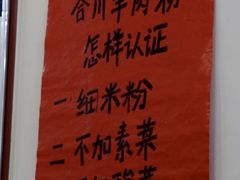 合川羊肉粉
怎样认证
一细米粉
二不加素菜